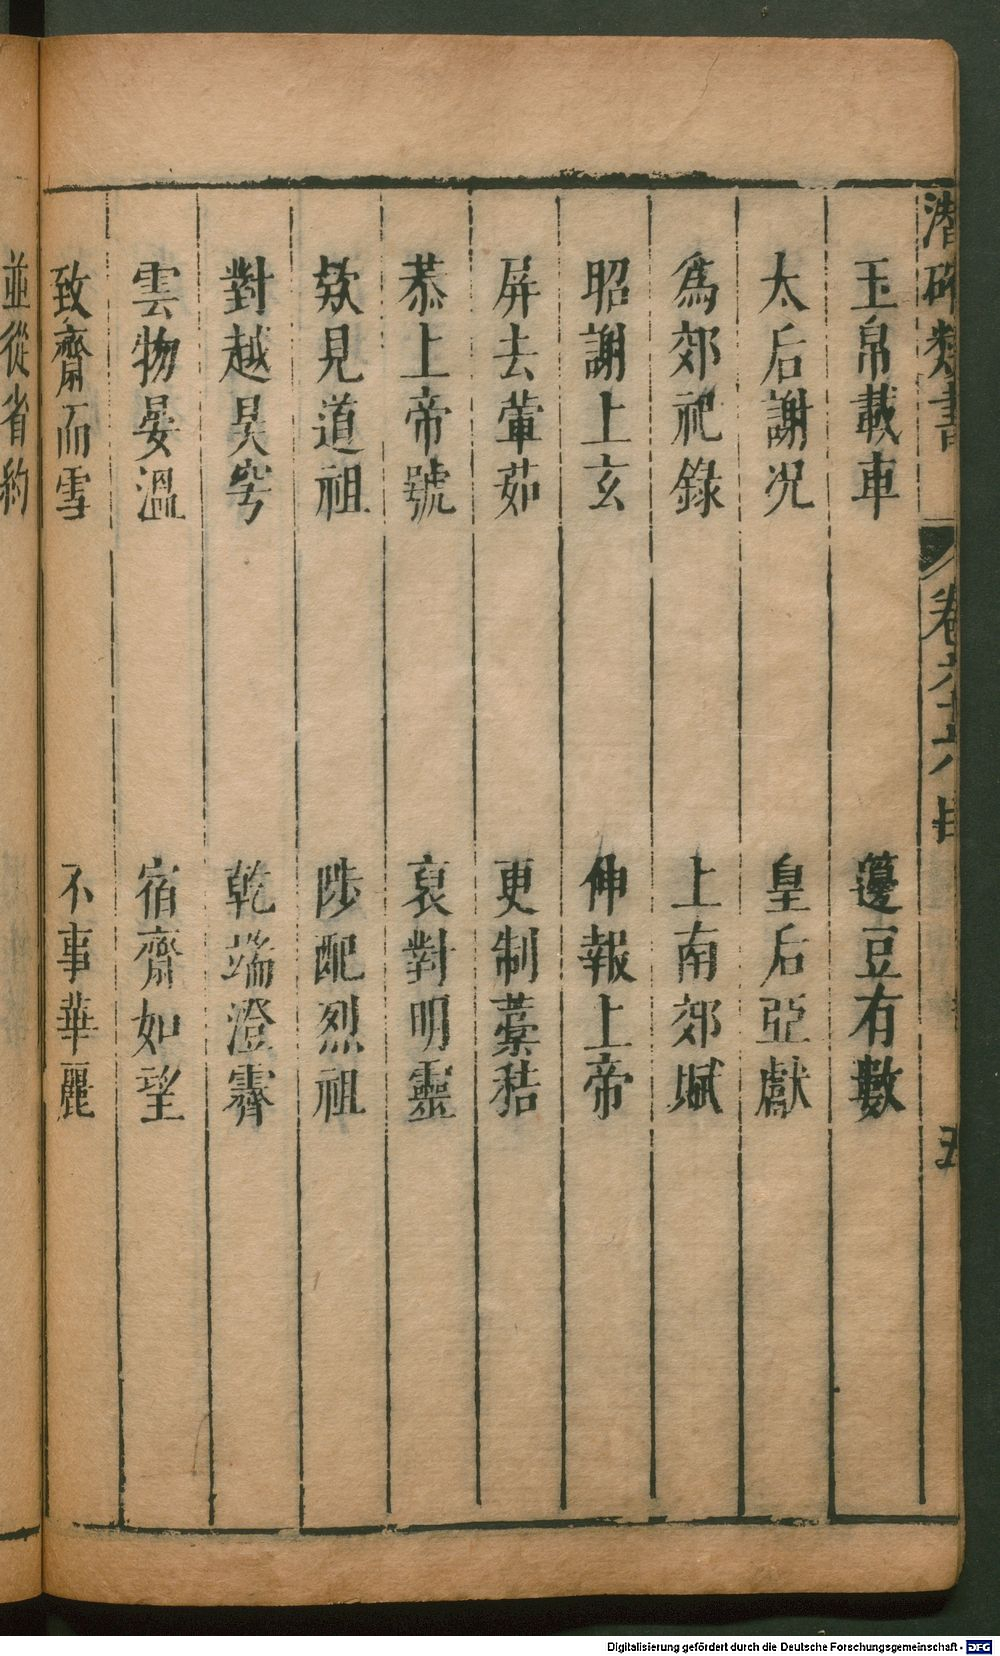 潛確類書 卷六十六目 五
玉帛載車 籩豆有數
太后謝况 皇后亞獻
爲郊祀錄 上南郊賦
昭謝上玄 伸報上帝
屏去葷茹 更制藁秸
恭上帝號 裒對明靈
欵見道祖 陟配烈祖
對越昊穹 乾端澄霽
雲物晏溫 宿齋如望
致齋而雪 不事華麗
並從省約
Digitalisierung gefördert durch die Deutsche Forschungsgemeinschaft - DFG